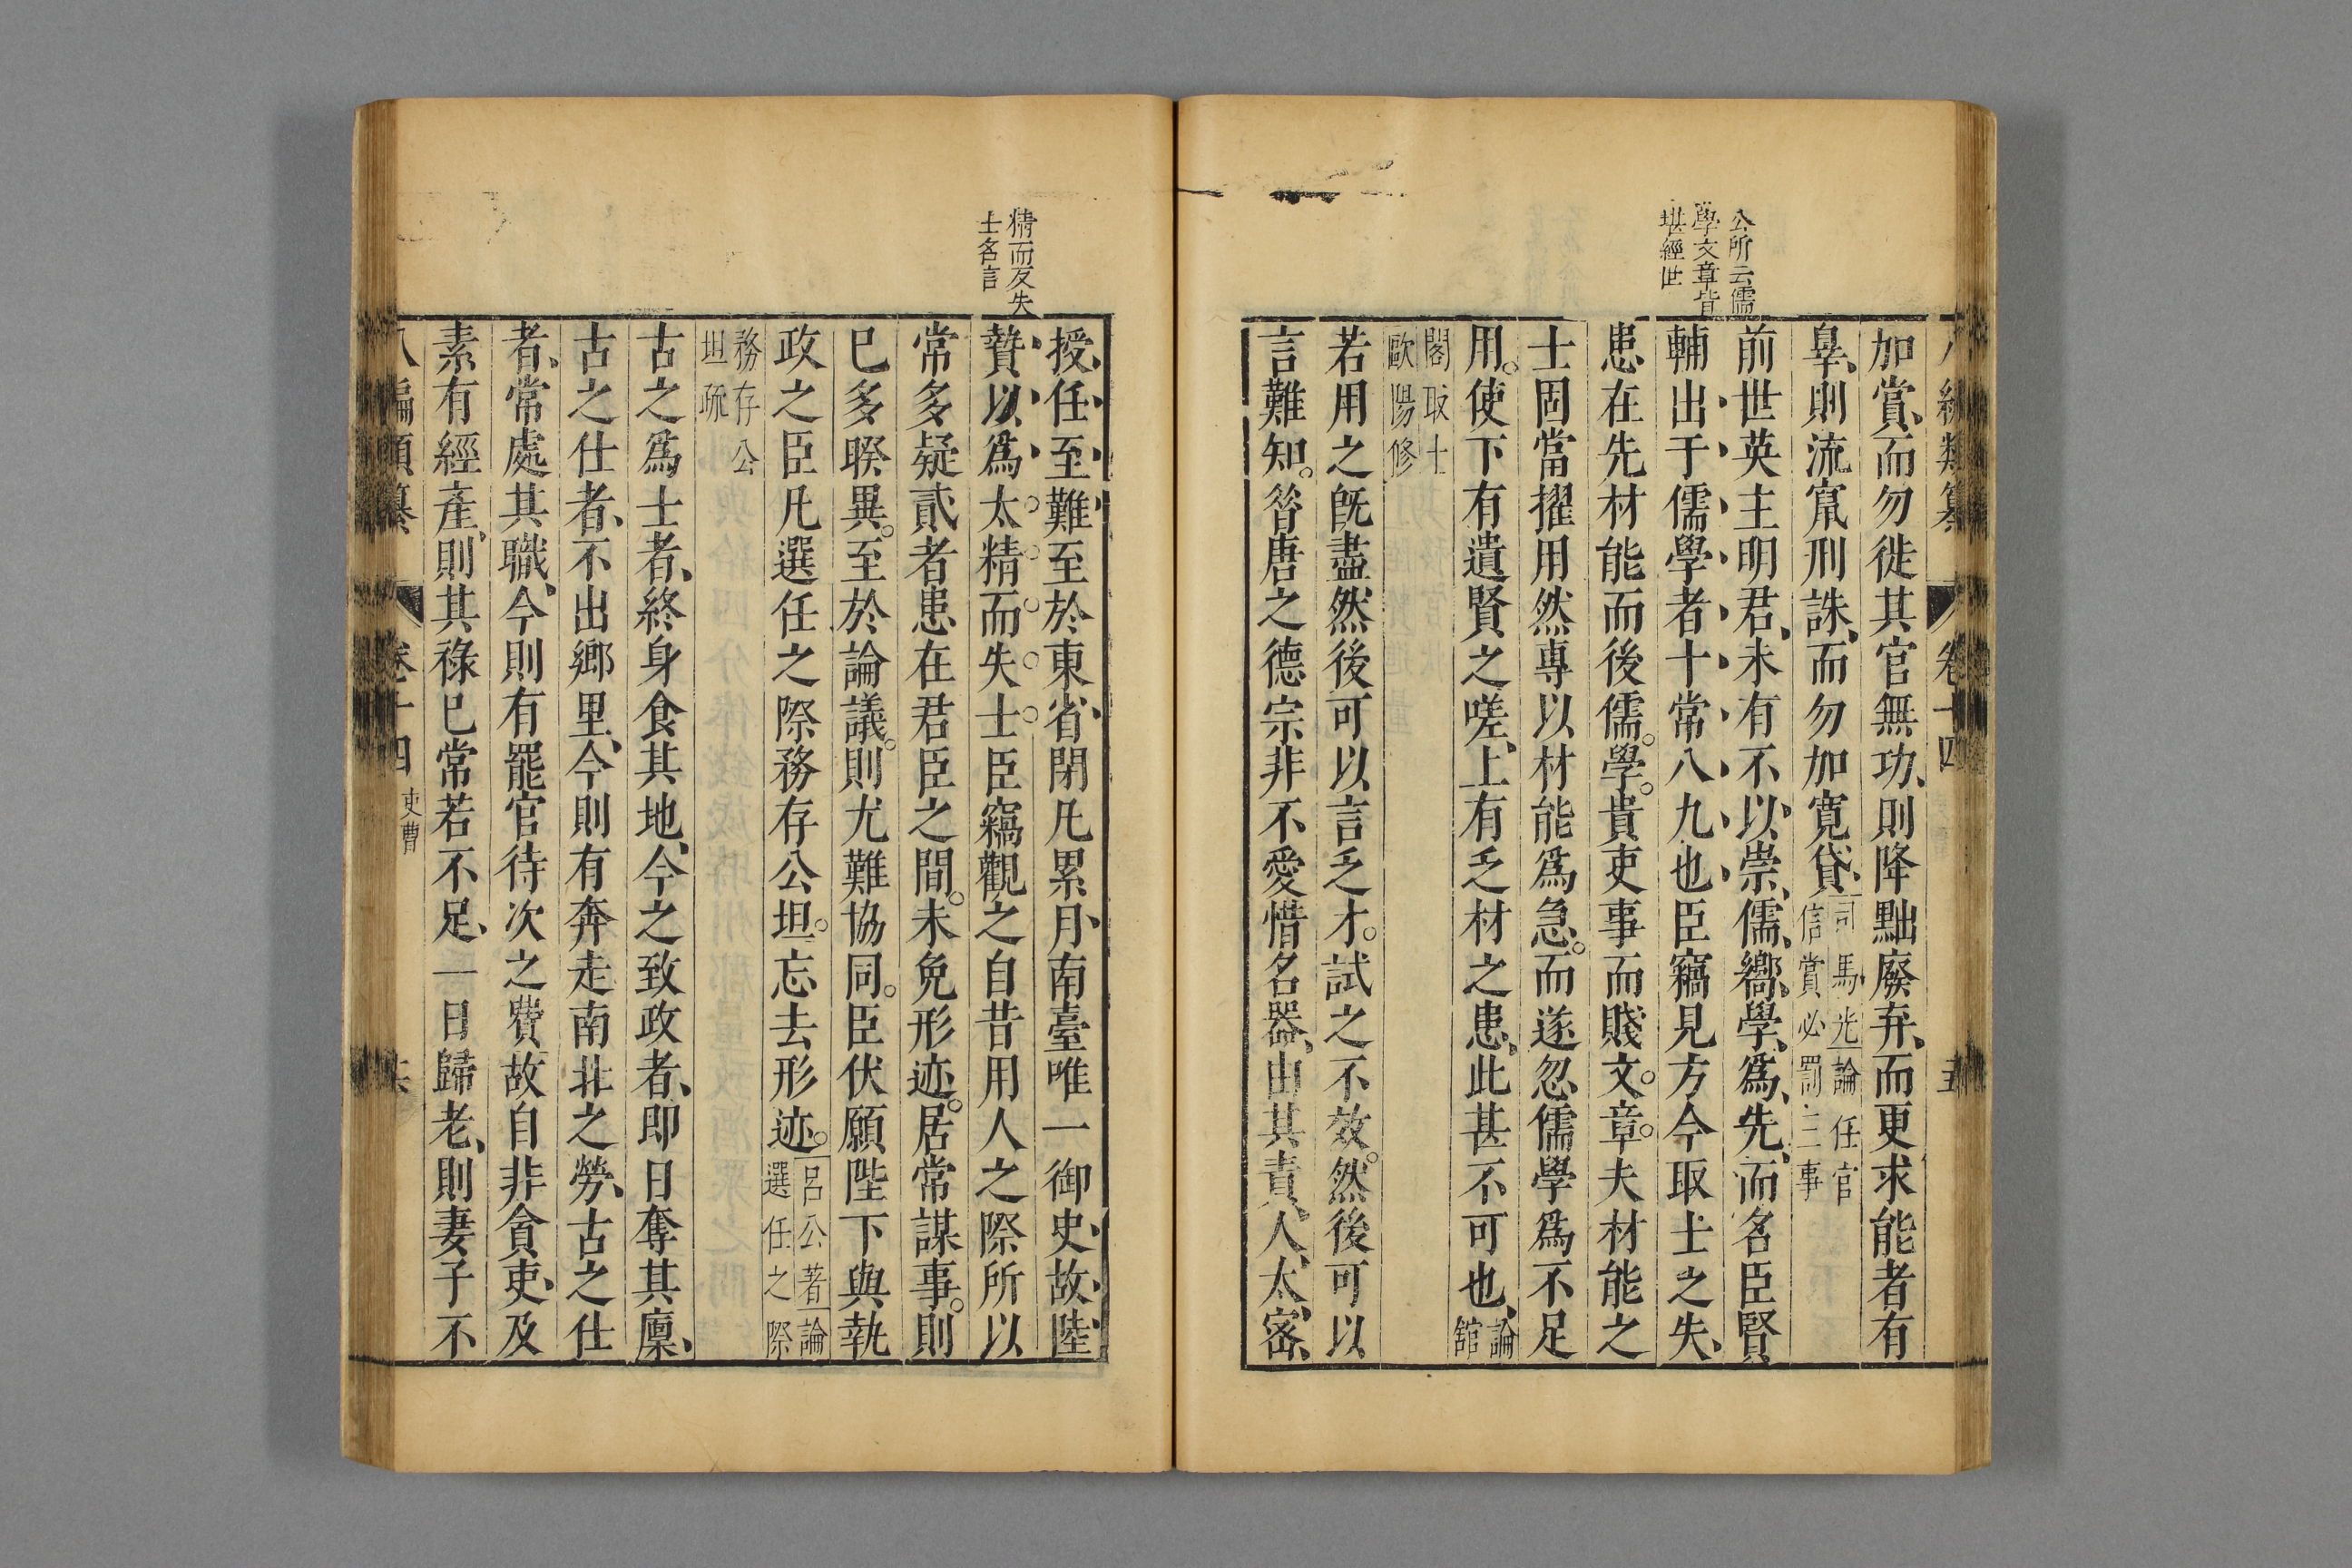 公所云儒
學文章皆
堪經世
加賞、而勿徙其官無功、則降黜廢弃、而更求能者有
辠、則流竄刑誅、而勿加寬貸、司馬光論任官
信賞必罰三事
前世英主明君、未有不以崇儒嚮學、爲先、而名臣賢
輔出于儒學者十常八九也、臣竊見方今取士之失、
患在先材能而後儒。學。貴吏事而賤文。章。夫材能之
士固當擢用然專以材能爲急。而遂忽儒學爲不足
用。使下有遺賢之嗟、上有乏材之患、此甚不可也、論
舘
閣取士
歐陽修
若用之旣盡然後可以言乏才。試之不效。然後可以
言難知。昝唐之德宗非不愛惜名器、由其責人、太、宻、
精而反失
士名言
授、任、至、難至於東省、閉凡累月、南臺唯一御史、故、陸、
贄、以、爲、太。精。而。失。士。臣竊觀之自昔用人之際所以
常多疑貳者患在君臣之間。未免形迹。居常謀事。則
已多睽異。至於論議。則尤難協同。臣伏願陛下與執
政之臣凡選任之際務存公坦。忘去形迹。呂公著論
選任之際
務存公
坦疏
古之爲士者、終身食其地、今之致政者、即日奪其廩、
古之仕者、不出鄉里、今則有奔走南北之勞、古之仕
者、常處其職、今則有罷官待次之費故自非貪吏、及
素有經產、則其祿已常若不足、一日歸老、則妻子不
八編類纂 卷十四 吏曹